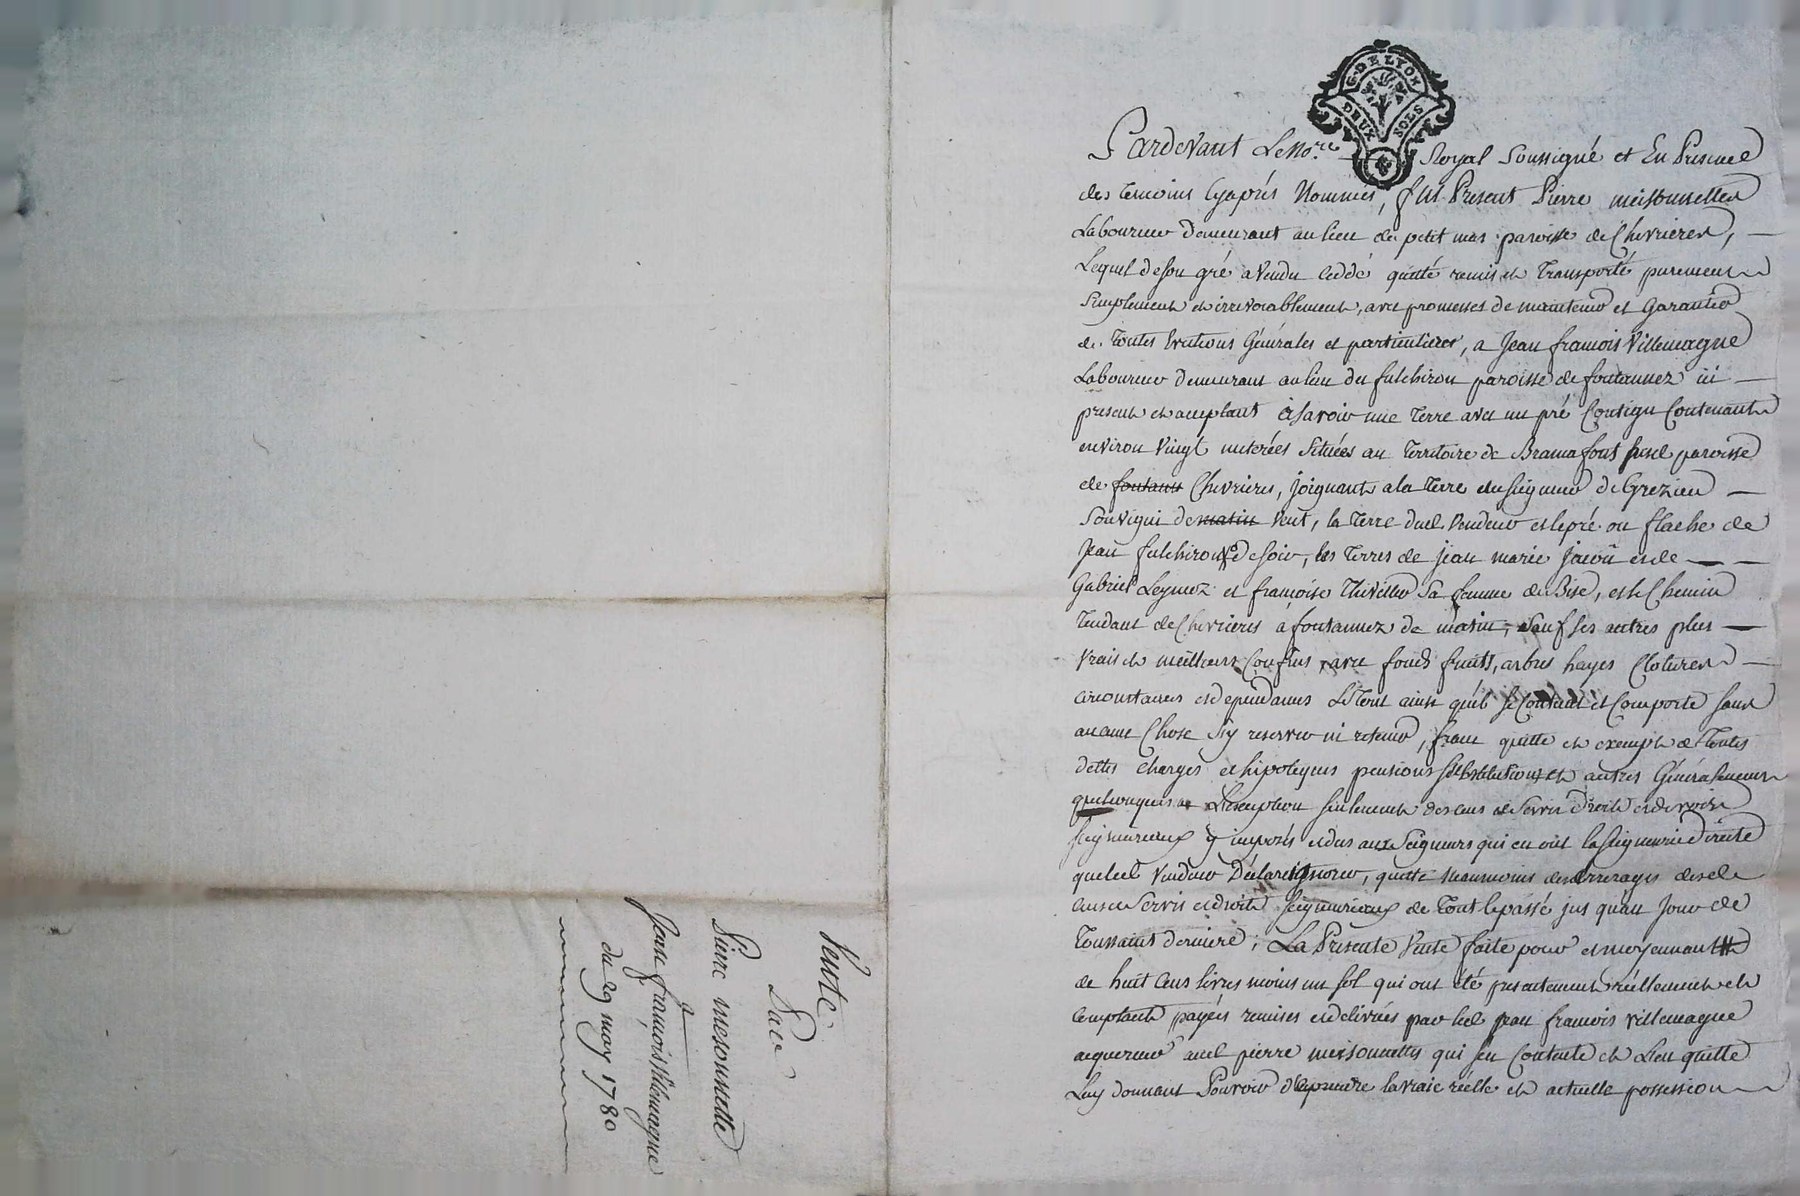 G. DE LYON
DEUX SOLS
Pardevant Le No.re Royal Soussigné et En Presence
des temoins Cyaprés Nommés, fut Present Pierre meisonnettes
Laboureur demeurant au lieu de petit mas paroisse de Chevrieres,
Lequel de son gré a vendu ceddé quitté remis et Transporté purement
Simplement et irrevocablement, avec promesses de maintenir et Garantir
de Toutes Evictions Générales et particulieres, a Jean françois Villemagne
Laboureur demeurant au lieu du fulchiron paroisse de fontannez ici
present et acceptant àsavoir une Terre avec un pré Contigu Contenant
environ Vingt meterées Situées au Territoire de Bramafont susd paroisse
de fontann Chevrieres, joignants a la Terre du seigneur de Grezieu
Souvigni de matin vent, la Terre dud. Vendeur et le pré ou flache de
Jean fulchiron de soir, les Terres de jean marie et de
Gabriel Leymez et françoise Thivillier Sa femme de Bise, et le Chemin
Tendant de Chevrieres à fontannez de matin, Sauf ses autres plus
Vrais et meilleurs Confins avec fonds fruits, arbres hayes Clotures
circonstances et dependances Le Tout ainsi quil Se Contient et Comporte sans
aucune Chose S'y reserver ni retenir, franc quitte et exempt de Toutes
dettes Charges et hipoteques pensions Substitutions et autres Généralement
quelconques a L'exception seulement des cens et Servis Droits et devoirs
seigneuriaux y imposés et dus aux Seigneurs qui en ont la seigneurie directe
que led. Vendeur Déclare ignorer, quitte neanmoins des arrerages desd.
cens et Servis et droits Seigneuriaux de Tout le passé jusqu'au Jour de
Toussaint derniere; La Presente Vente faite pour et moyennant
de huit Cens livres moins un sol qui ont été presentement réellement et
Comptant payées remises et delivrées par led jean francois villemagne
acquereur aud pierre meisonnettes qui s'en Contente et L'en quitte
Luy donnant Pouvoir d'en prendre la vraie réelle et actuelle possession
Vente
Par
Pierre mesonnette
a
Jean françois Villemagne
du 29 may 1780